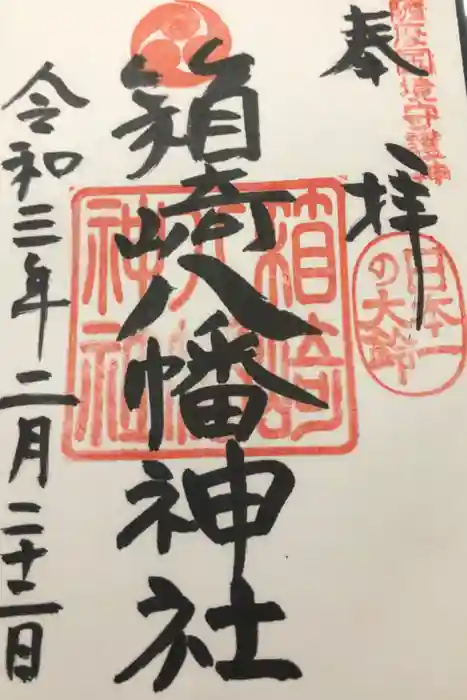 国境守護神
奉拝
日本一
の大鈴
箱崎八幡神社
箱崎
八幡
神社
令和三年二月二十二日